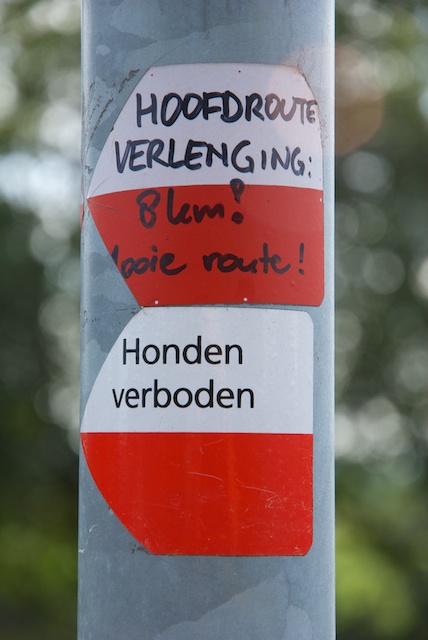 HOOFDROUTE
VERLENGING:
8 km!
route!
Honden
verboden